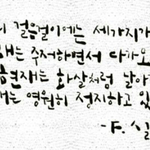 걸음걸이에는 세가지가
는 주저하면서 다가오
현재는 화살처럼 날아
는 영원히 정지하고 있
-F. 실